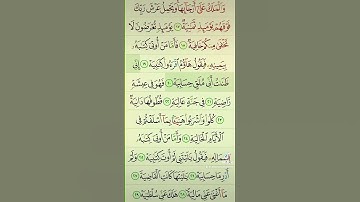 وَٱلْمَلَكُ عَلَىٰٓ أَرْجَآئِهَا ۚ وَيَحْمِلُ عَرْشَ رَبِّكَ
فَوْقَهُمْ يَوْمَئِذٍ ثَمَٰنِيَةٌ ١٧ يَوْمَئِذٍ تُعْرَضُونَ لَا
تَخْفَىٰ مِنكُمْ خَافِيَةٌ ١٨ فَأَمَّا مَنْ أُوتِىَ كِتَٰبَهُۥ
بِيَمِينِهِۦ فَيَقُولُ هَآؤُمُ ٱقْرَءُوا۟ كِتَٰبِيَهْ ١٩ إِنِّى
ظَنَنتُ أَنِّى مُلَٰقٍ حِسَابِيَهْ ٢٠ فَهُوَ فِى عِيشَةٍ
رَّاضِيَةٍ ٢١ فِى جَنَّةٍ عَالِيَةٍ ٢٢ قُطُوفُهَا دَانِيَةٌ
٢٣ كُلُوا۟ وَٱشْرَبُوا۟ هَنِيٓـًٔۢا بِمَآ أَسْلَفْتُمْ فِى
ٱلْأَيَّامِ ٱلْخَالِيَةِ ٢٤ وَأَمَّا مَنْ أُوتِىَ كِتَٰبَهُۥ
بِشِمَالِهِۦ فَيَقُولُ يَٰلَيْتَنِى لَمْ أُوتَ كِتَٰبِيَهْ ٢٥ وَلَمْ
أَدْرِ مَا حِسَابِيَهْ ٢٦ يَٰلَيْتَهَا كَانَتِ ٱلْقَاضِيَةَ ٢٧
مَآ أَغْنَىٰ عَنِّى مَالِيَهْ ۜ ٢٨ هَلَكَ عَنِّى سُلْطَٰنِيَهْ ٢٩